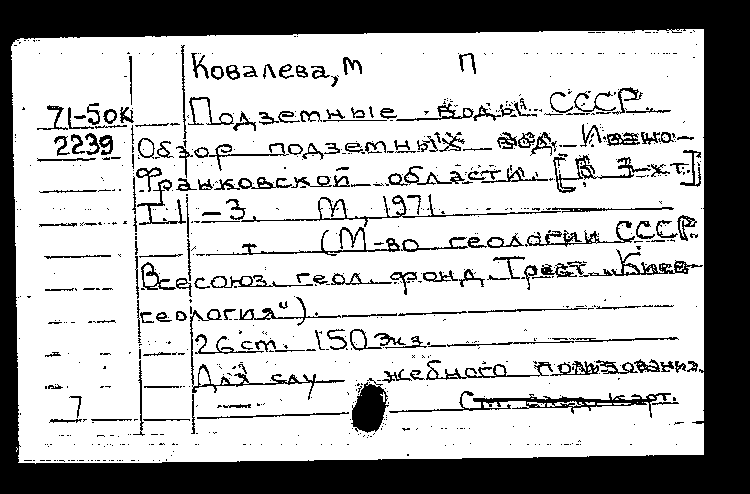 Ковалева, М П
71-50к Подземные воды СССР.
2239 Обзор подземных вод Ивано-
Франковской области. [В 3-х т.]
Т. 1 - 3. М, 1971.
т. (М-во геологии СССР.
Всесоюз. геол. фонд. Трест „Киев-
геология").
26 ст. 150 экз.
Для слу жебного пользования.
7 Ст. след. карт.